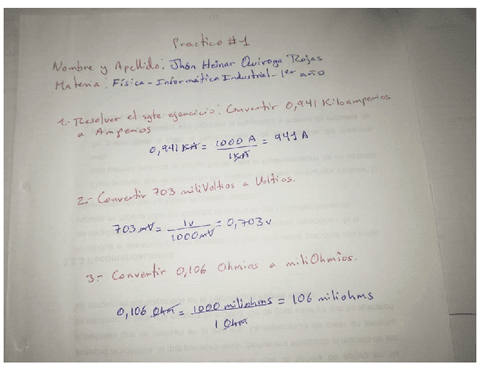 Practico #1
Nombre y Apellido: Jhon Heinar Quiroga Rojas
Materia: Física - Informática Industrial - 1er año
1.- Resolver el sgte ejercicio: Convertir 0,941 Kiloamperios
a Amperios
0,941 KA = 1000 A / 1KA = 941 A
2.- Convertir 703 miliVoltios a Voltios.
703 mV = 1v / 1000mV = 0,703v
3.- Convertir 0,106 Ohmios a miliOhmios.
0,106 Ohm = 1000 miliohms / 1 Ohm = 106 miliohms